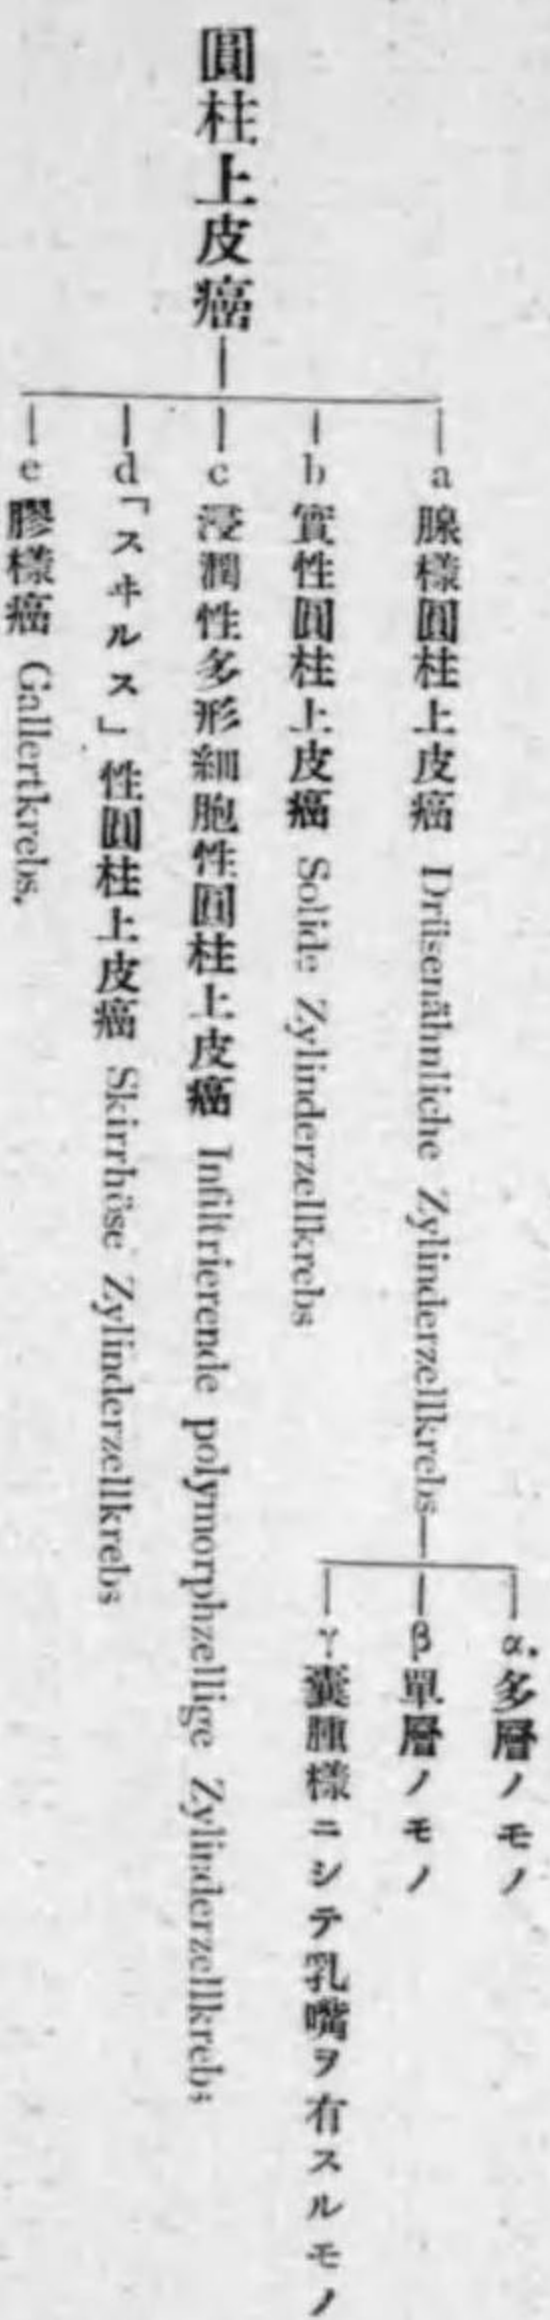 圓柱上皮癌
a 腺樣圓柱上皮癌 Drüsenähnliche Zylinderzellkrebs
α. 多層ノモノ
β 單層ノモノ
γ 囊腫樣ニシテ乳嘴ヲ有スルモノ
b 實性圓柱上皮癌 Solide Zylinderzellkrebs
c 浸潤性多形細胞性圓柱上皮癌 Infiltrierende polymorphzellige Zylinderzellkrebs
d 「スヰルス」性圓柱上皮癌 Skirrhöse Zylinderzellkrebs
e 膠樣癌 Gallertkrebs.